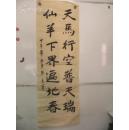 天马行空普天瑞
仙羊下界遍地春